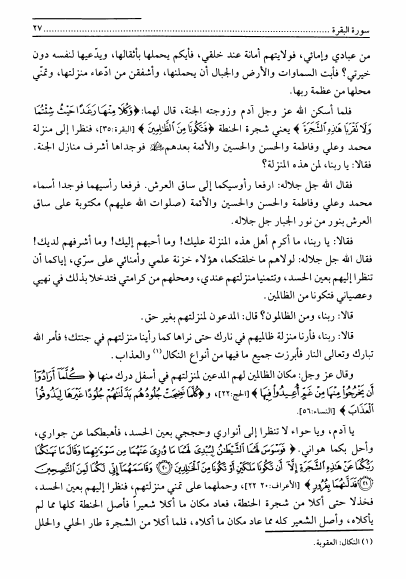 سورة البقرة ........ ٢٧
من عبادي وإمائي، فولايتهم أمانة عند خلقي، فأيكم يحملها بأثقالها، ويدّعيها لنفسه دون
خيرتي؟ فأبت السماوات والأرض والجبال أن يحملنها، وأشفقن من ادّعاء منزلتها، وتمنّي
محلها من عظمة ربها.
فلما أسكن الله عز وجل آدم وزوجته الجنة، قال لهما: ﴿وَكُلَا مِنْهَا رَغَدًا حَيْثُ شِئْتُمَا
وَلَا تَقْرَبَا هَذِهِ الشَّجَرَةَ﴾ يعني شجرة الحنطة ﴿فَتَكُونَا مِنَ الظَّالِمِينَ﴾ [البقرة:٣٥]، فنظرا إلى منزلة
محمد وعلي وفاطمة والحسن والحسين والأئمة بعدهم فوجداها أشرف منازل الجنة.
فقالا: يا ربنا، لمن هذه المنزلة؟
فقال الله جل جلاله: ارفعا رأوسيكما إلى ساق العرش. فرفعا رأسيهما فوجدا أسماء
محمد وعلي وفاطمة والحسن والحسين والأئمة (صلوات الله عليهم) مكتوبة على ساق
العرش بنور من نور الجبار جل جلاله.
فقالا: يا ربنا، ما أكرم أهل هذه المنزلة عليك! وما أحبهم إليك! وما أشرفهم لديك!
فقال الله جل جلاله: لولاهم ما خلقتكما، هؤلاء خزنة علمي وأمنائي على سرّي، إياكما أن
تنظرا إليهم بعين الحسد، وتتمنيا منزلتهم عندي، ومحلهم من كرامتي فتدخلا بذلك في نهيي
وعصياني فتكونا من الظالمين.
قالا: ربنا، ومن الظالمون؟ قال: المدعون لمنزلتهم بغير حق.
قالا: ربنا، فأرنا منزلة ظالميهم في نارك حتى نراها كما رأينا منزلتهم في جنتك؛ فأمر الله
تبارك وتعالى النار فأبرزت جميع ما فيها من أنواع النكال(١) والعذاب.
وقال عز وجل: مكان الظالمين لهم المدعين لمنزلتهم في أسفل درك منها ﴿كُلَّمَا أَرَادُوا
أَن يَخْرُجُوا مِنْهَا مِنْ غَمٍّ أُعِيدُوا فِيهَا﴾ [الحج:٢٢]، و﴿كُلَّمَا نَضِجَتْ جُلُودُهُم بَدَّلْنَاهُمْ جُلُودًا غَيْرَهَا لِيَذُوقُوا
الْعَذَابَ﴾ [النساء:٥٦].
يا آدم، ويا حواء لا تنظرا إلى أنواري وحججي بعين الحسد، فأهبطكما عن جواري،
وأحل بكما هواني. ﴿فَوَسْوَسَ لَهُمَا الشَّيْطَانُ لِيُبْدِيَ لَهُمَا مَا وُورِيَ عَنْهُمَا مِن سَوْءَاتِهِمَا وَقَالَ مَا نَهَاكُمَا
رَبُّكُمَا عَنْ هَذِهِ الشَّجَرَةِ إِلَّا أَن تَكُونَا مَلَكَيْنِ أَوْ تَكُونَا مِنَ الْخَالِدِينَ ﴿٢٠﴾ وَقَاسَمَهُمَا إِنِّي لَكُمَا لَمِنَ النَّاصِحِينَ
﴿٢١﴾ فَدَلَّاهُمَا بِغُرُورٍ﴾ [الأعراف: ٢٠-٢٢]، وحملهما على تمني منزلتهم، فنظرا إليهم بعين الحسد،
فخذلا حتى أكلا من شجرة الحنطة، فعاد مكان ما أكلا شعيراً فأصل الحنطة كلها مما لم
يأكلاه، وأصل الشعير كله مما عاد مكان ما أكلاه، فلما أكلا من الشجرة طار الحلي والحلل
(١) النكال: العقوبة.